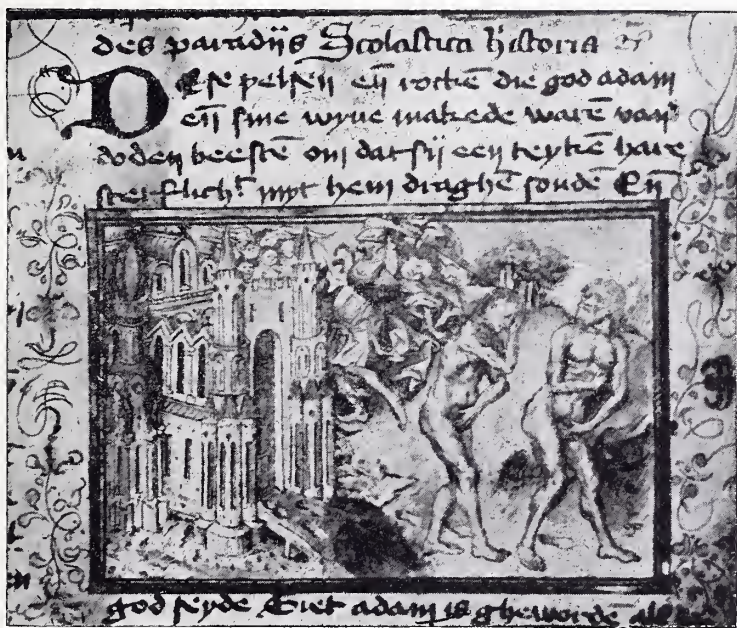 des paradijs Scolastica historia
Dese pelsen en rocken die god adam
en sine wyue makede waren van
doden beesten om dat sij een teyken hare
sterflich. myt hem draghen souden En
god seyde Siet adam is gheworden als